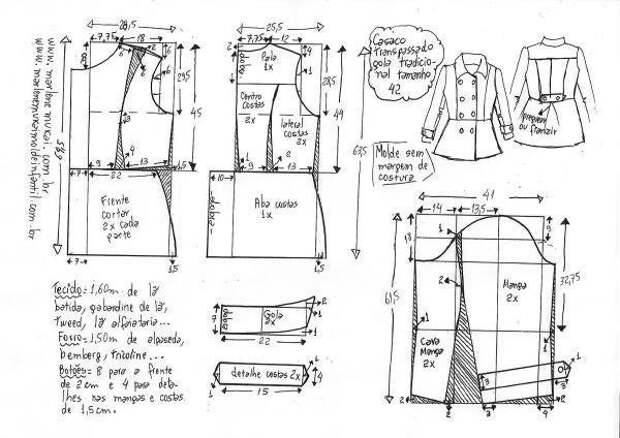 www.marlenemukai.com.br
www.marlenemukaimoldeinfantil.com.br
28,5
7,75
18
2
6
29,5
45
3
9
4
13
1,5
7
22
Frente
cortar
2x cada
parte
7
1,5
25,5
7,75
12
2
4
dobra
Pala
1x
1
28,5
49
63,5
Centro
costas
2x
lateral
costas
2x
1
9
2
13
1
10
22
dobra
Aba costas
1x
1,5
Casaco
transpassado
gola tradicio-
nal tamanho
42
Molde sem
margem de
costura
preguem
ou franzir
41
14
13,5
1
9
18
61,5
2
Manga
2x
32,75
1
Cava
Manga
2x
1
3
3
2
2
2
4
Tecido= 1,60m de lã
batida, gabardine de lã,
tweed, lã alfaiataria...
Forro= 1,50m de alpaseda,
bemberg, tricoline...
Botões= 8 para a frente
de 2cm e 4 para deta
lhes nas mangas e costas
de 1,5cm.
7
dobra
Gola
2x
2
1
22
detalhe costas 2x
1
4
1
15